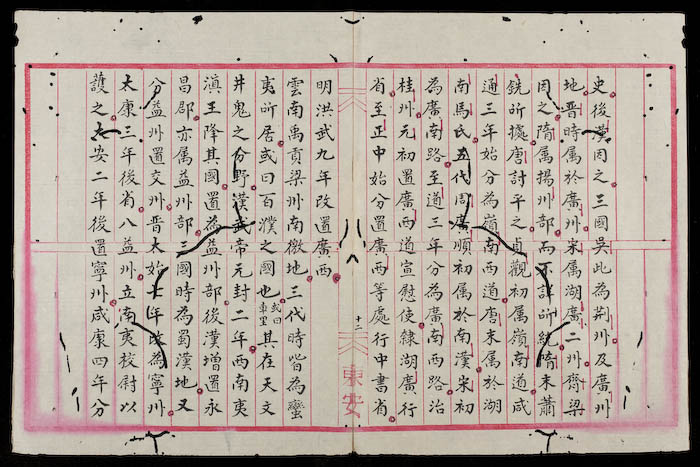 史後漢因之三國吳此為荆州及廣州
地晉時属於廣州宋属湖廣二州齊梁
因之隋属揚州部而不詳所統隋末蕭
銑所據唐討平之貞觀初属嶺南道咸
通三年始分為嶺南西道唐末属於湖
南馬氏五代周廣順初属於南漢宋初
為廣南路至道三年分為廣南西路治
桂州元初置廣西道宣慰使隸湖廣行
省至正中始分置廣西等處行中書省
八
十二
東安
明洪武九年改置廣西
雲南禹貢梁州南徼地三代時皆為蠻
夷所居或曰百濮之國也或曰其在天文
井鬼之分野漢武帝元封二年西南夷
滇王降其國置為益州部後漢增置永
昌郡亦属益州部三國時為蜀漢地又
分益州置交州晉太始七年改為寧州
太康三年後省入益州立南夷校尉以
護之太安二年後置寧州咸康四年分